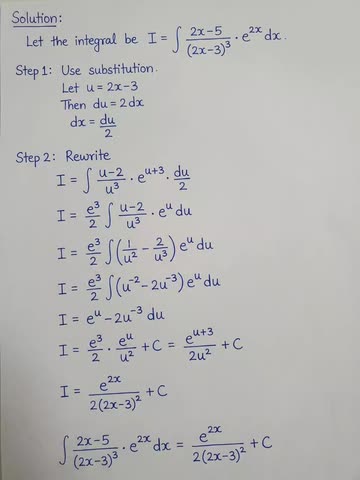 Solution:
Let the integral be I = ∫ (2x-5)/(2x-3)³ · e^(2x) dx.
Step 1: Use substitution.
Let u = 2x-3
Then du = 2dx
dx = du/2
Step 2: Rewrite
I = ∫ (u-2)/u³ · e^(u+3) · du/2
I = e³/2 ∫ (u-2)/u³ · e^u du
I = e³/2 ∫ (1/u² - 2/u³) e^u du
I = e³/2 ∫ (u⁻² - 2u⁻³) e^u du
I = e^u - 2u⁻³ du
I = e³/2 · e^u/u² + C = e^(u+3)/2u² + C
I = e^(2x)/2(2x-3)² + C
∫ (2x-5)/(2x-3)³ · e^(2x) dx = e^(2x)/2(2x-3)² + C